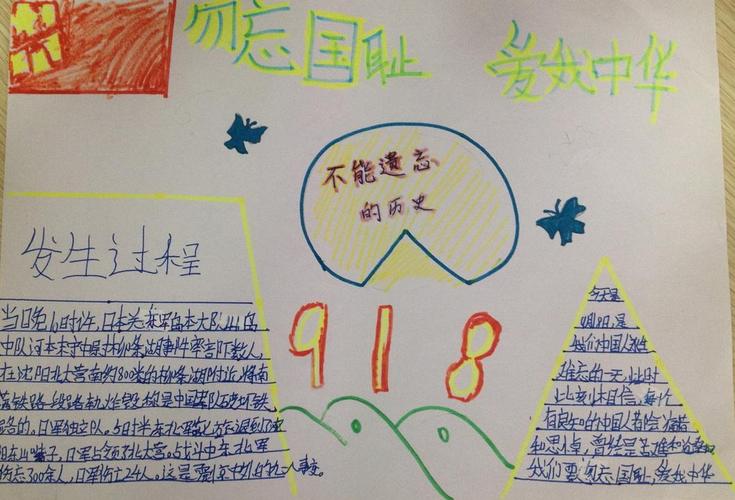 勿忘国耻 爱我中华
不能遗忘
的历史
发生过程
918
当日晚 时许,日本关 军 本大队 岛
中队河本末守中尉 柳条湖 率 下数人,
在沈阳北大营南约800米的柳条湖附近,将南
满铁路一段路轨炸毁, 是中国军队破坏铁
路的。日军独立
日军占领了北大营。战斗中东北军
伤亡300余人,日军伤亡24人。这是震惊中外的九一八事变。
今天是
9月18日,是
我们中国人
难忘的一天,此时
此刻,我相信,每个
有良知的中国人都会
和思 ,曾经是苦难和
我们要勿忘国耻,爱我中华